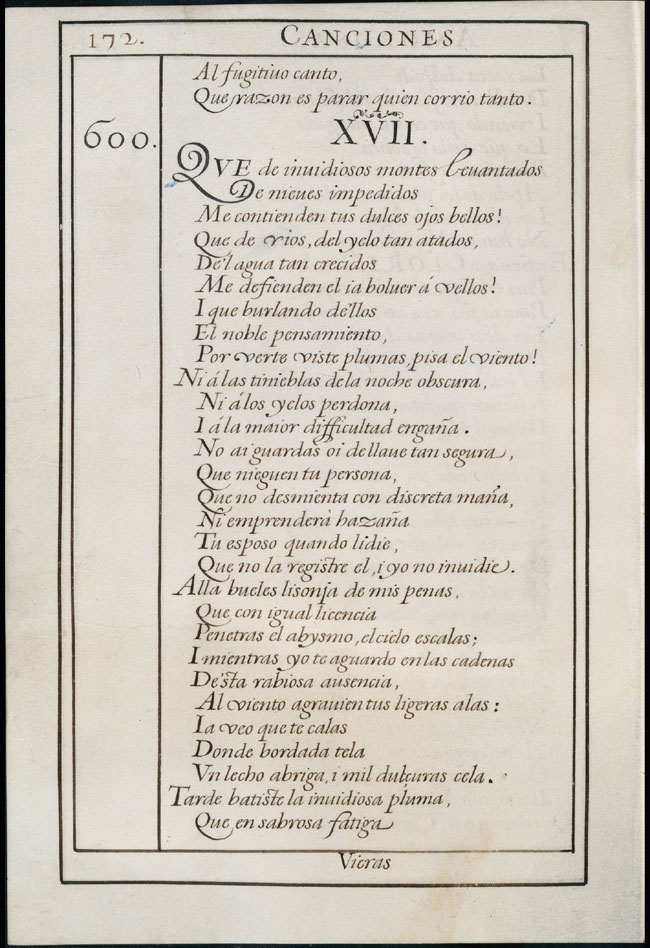 172.
CANCIONES
Al fugitiuo canto,
Que razon es parar quien corrio tanto.
600.
XVII.
QVE de inuidiosos montes leuantados
De nieues impedidos
Me contienden tus dulces ojos bellos!
Que de rios, del yelo tan atados,
De'l agua tan crecidos
Me defienden el ia boluer á vellos!
I que burlando de'llos
El noble pensamiento,
Por verte viste plumas, pisa el viento!
Ni á las tinieblas de la noche obscura,
Ni á los yelos perdona,
I á la maior difficultad engaña.
No ai guardas oi de llaue tan segura,
Que nieguen tu persona,
Que no desmienta con discreta maña,
Ni emprenderà hazaña
Tu esposo quando lidie,
Que no la registre el, i yo no inuidie.
Alla bueles lisonja de mis penas,
Que con igual licencia
Penetras el abysmo, el cielo escalas;
I mientras yo te aguardo en las cadenas
De'sta rabiosa ausencia,
Al viento agrauien tus ligeras alas:
Ia veo que te calas
Donde bordada tela
Vn lecho abriga, i mil dulçuras cela.
Tarde batiste la inuidiosa pluma,
Que en sabrosa fatiga
Vieras